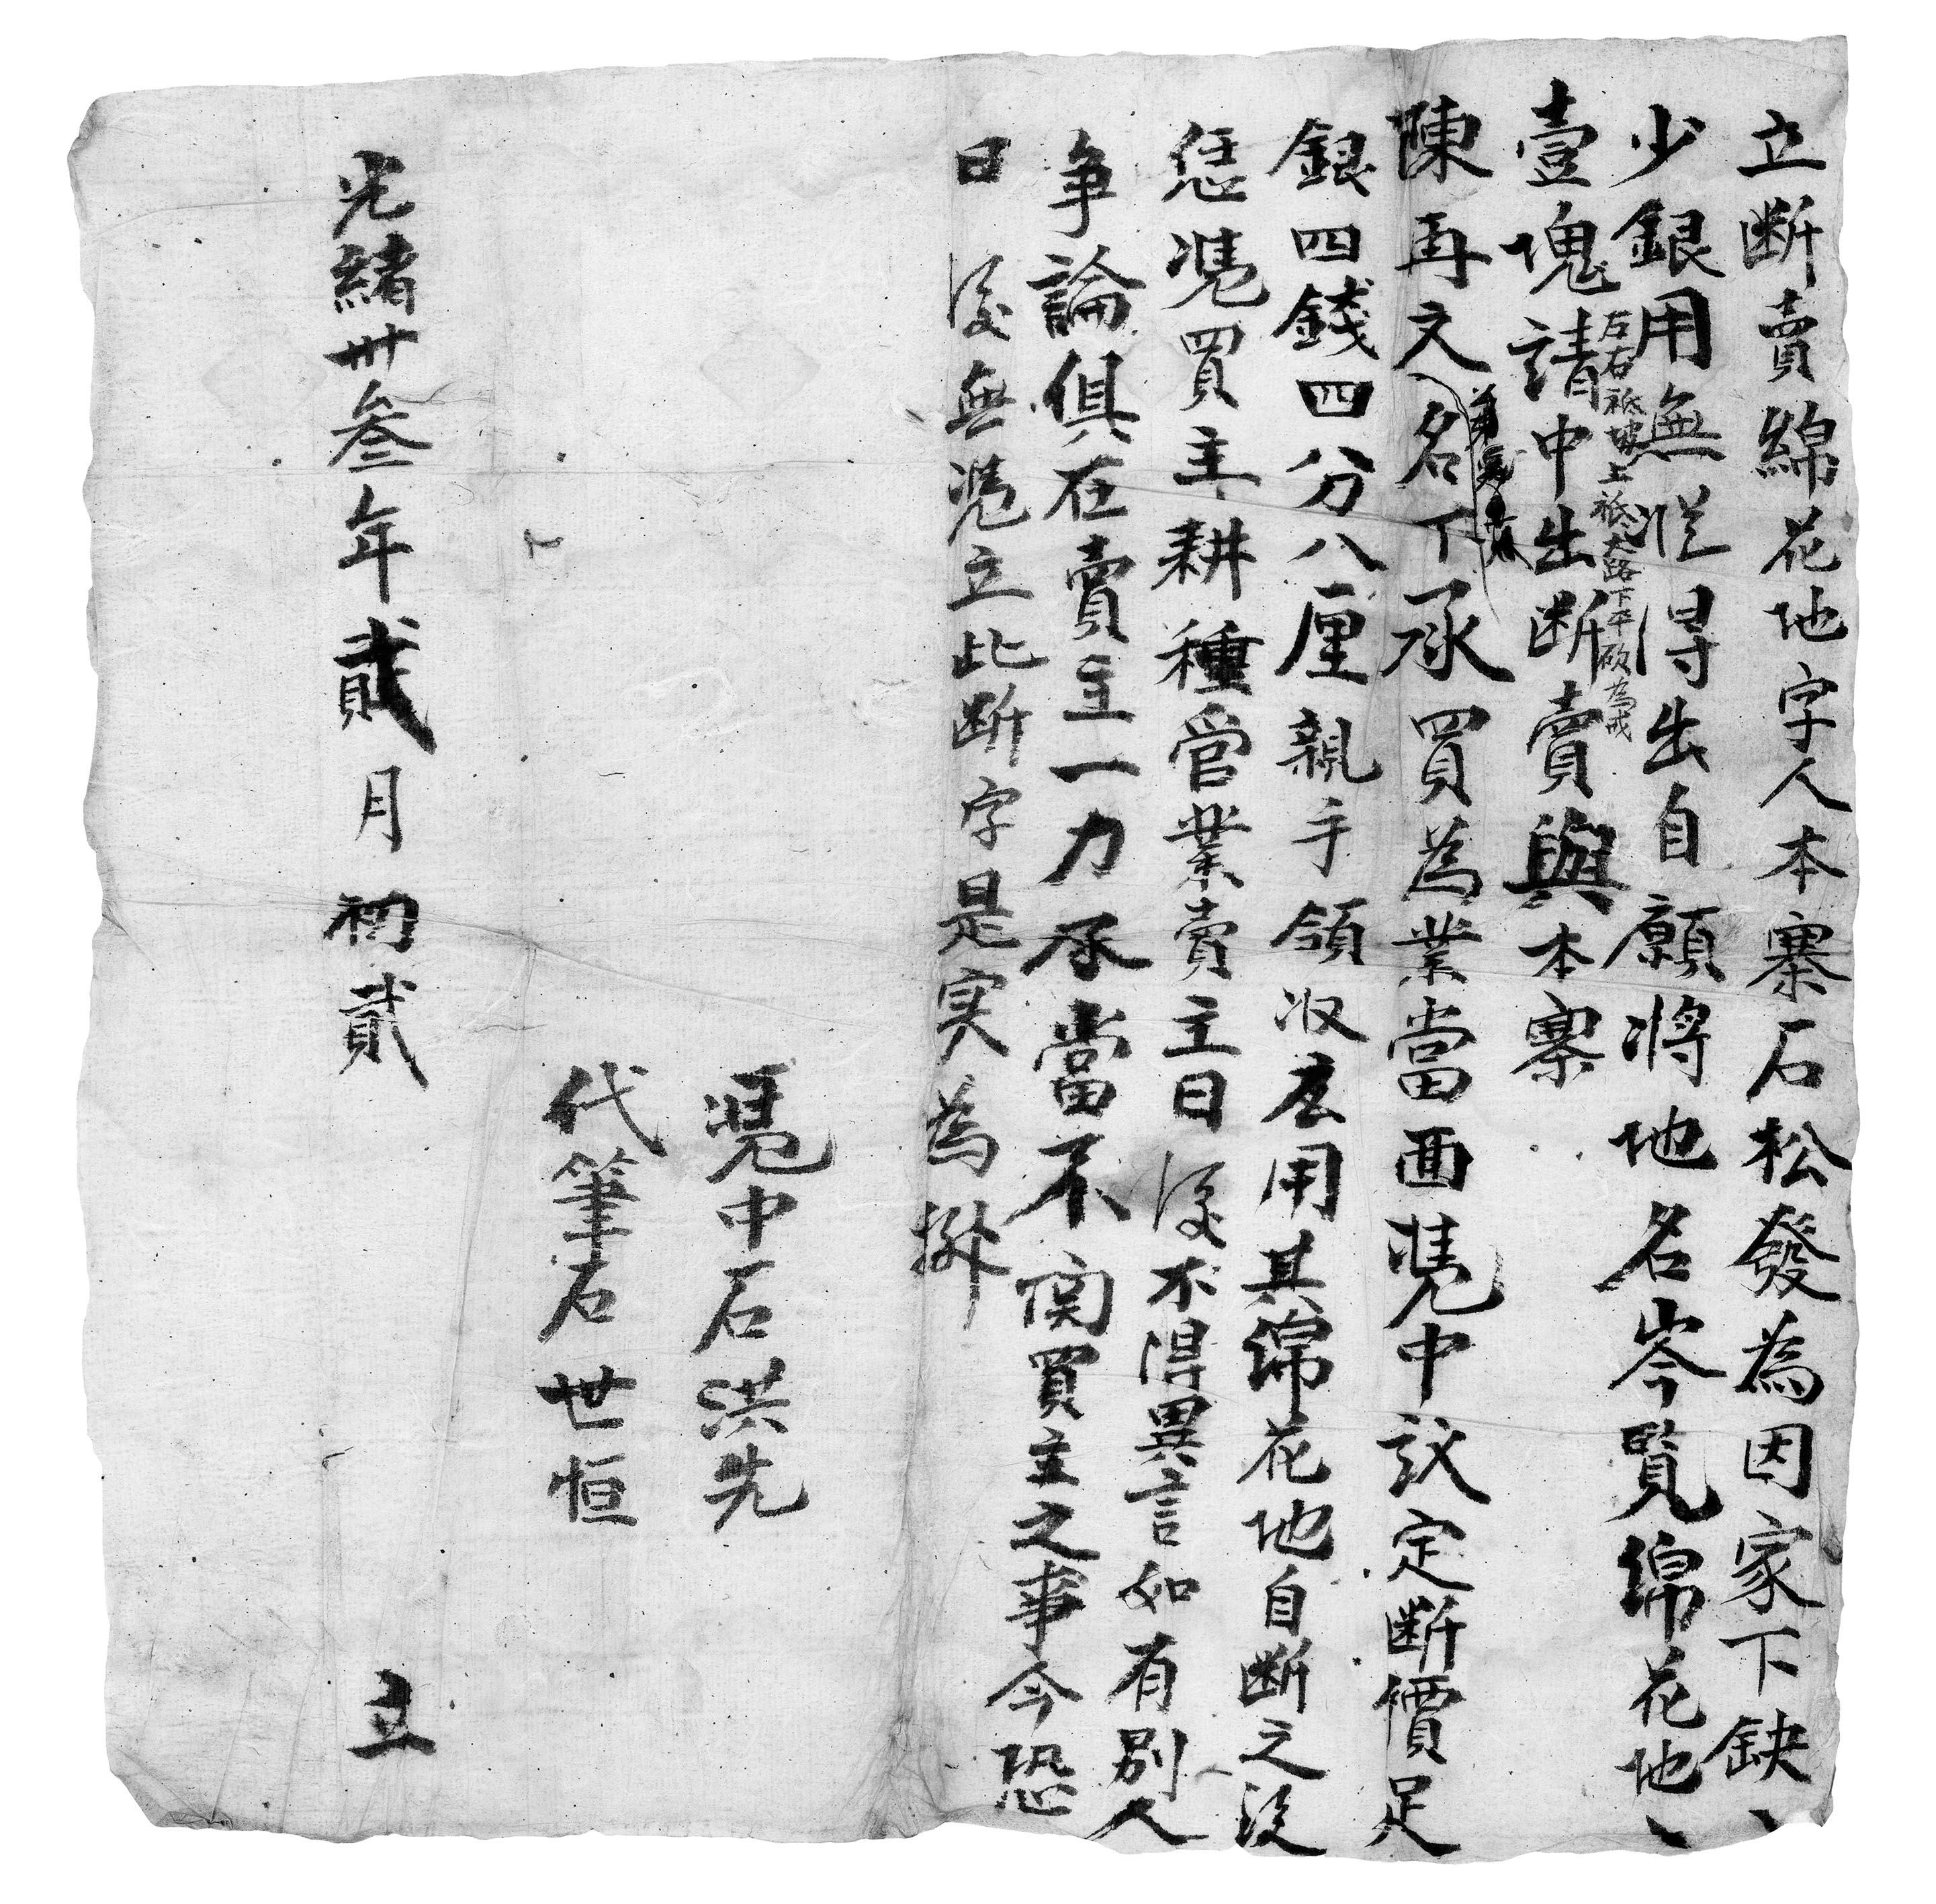 立断賣綿花地字人本寨石松發為因家下缺
少銀用無従得出自願將地名岑覽綿花地
左右祗坡上祗大路下平砍為戒
壹塊請中出断賣與本寨
陳再文名下承買為業當面凴中議定断價足
銀四錢四分八厘親手領收應用其綿花地自断之後
恁凴買主耕種管業賣主日後不得異言如有別人
争論俱在賣主一力承當不関買主之事今恐
日後無凴立此断字是实為拠
凴中石洪先
代筆石世恒
光緒卅叁年貳月初貳立